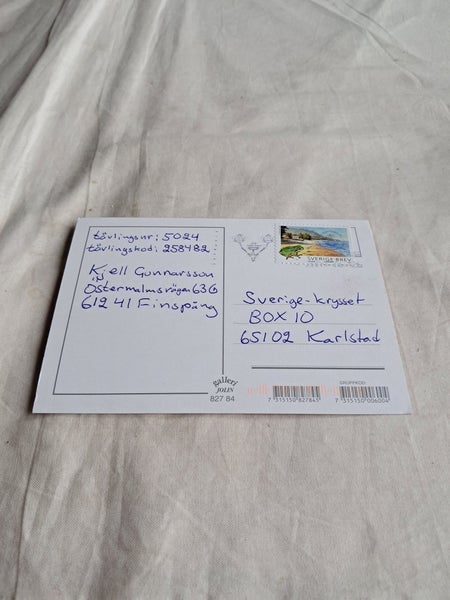 tävlingsnr: 5024
tävlingskod: 258482
Kjell Gunnarsson
Östermalmsvägen 63
612 41 Finspång
SVERIGE BREV
Sverige-krysset
BOX 10
65102 Karlstad
galleri
JOLIN
827 84
GRUPPKOD:
7 315150 827843
7 315150 006004